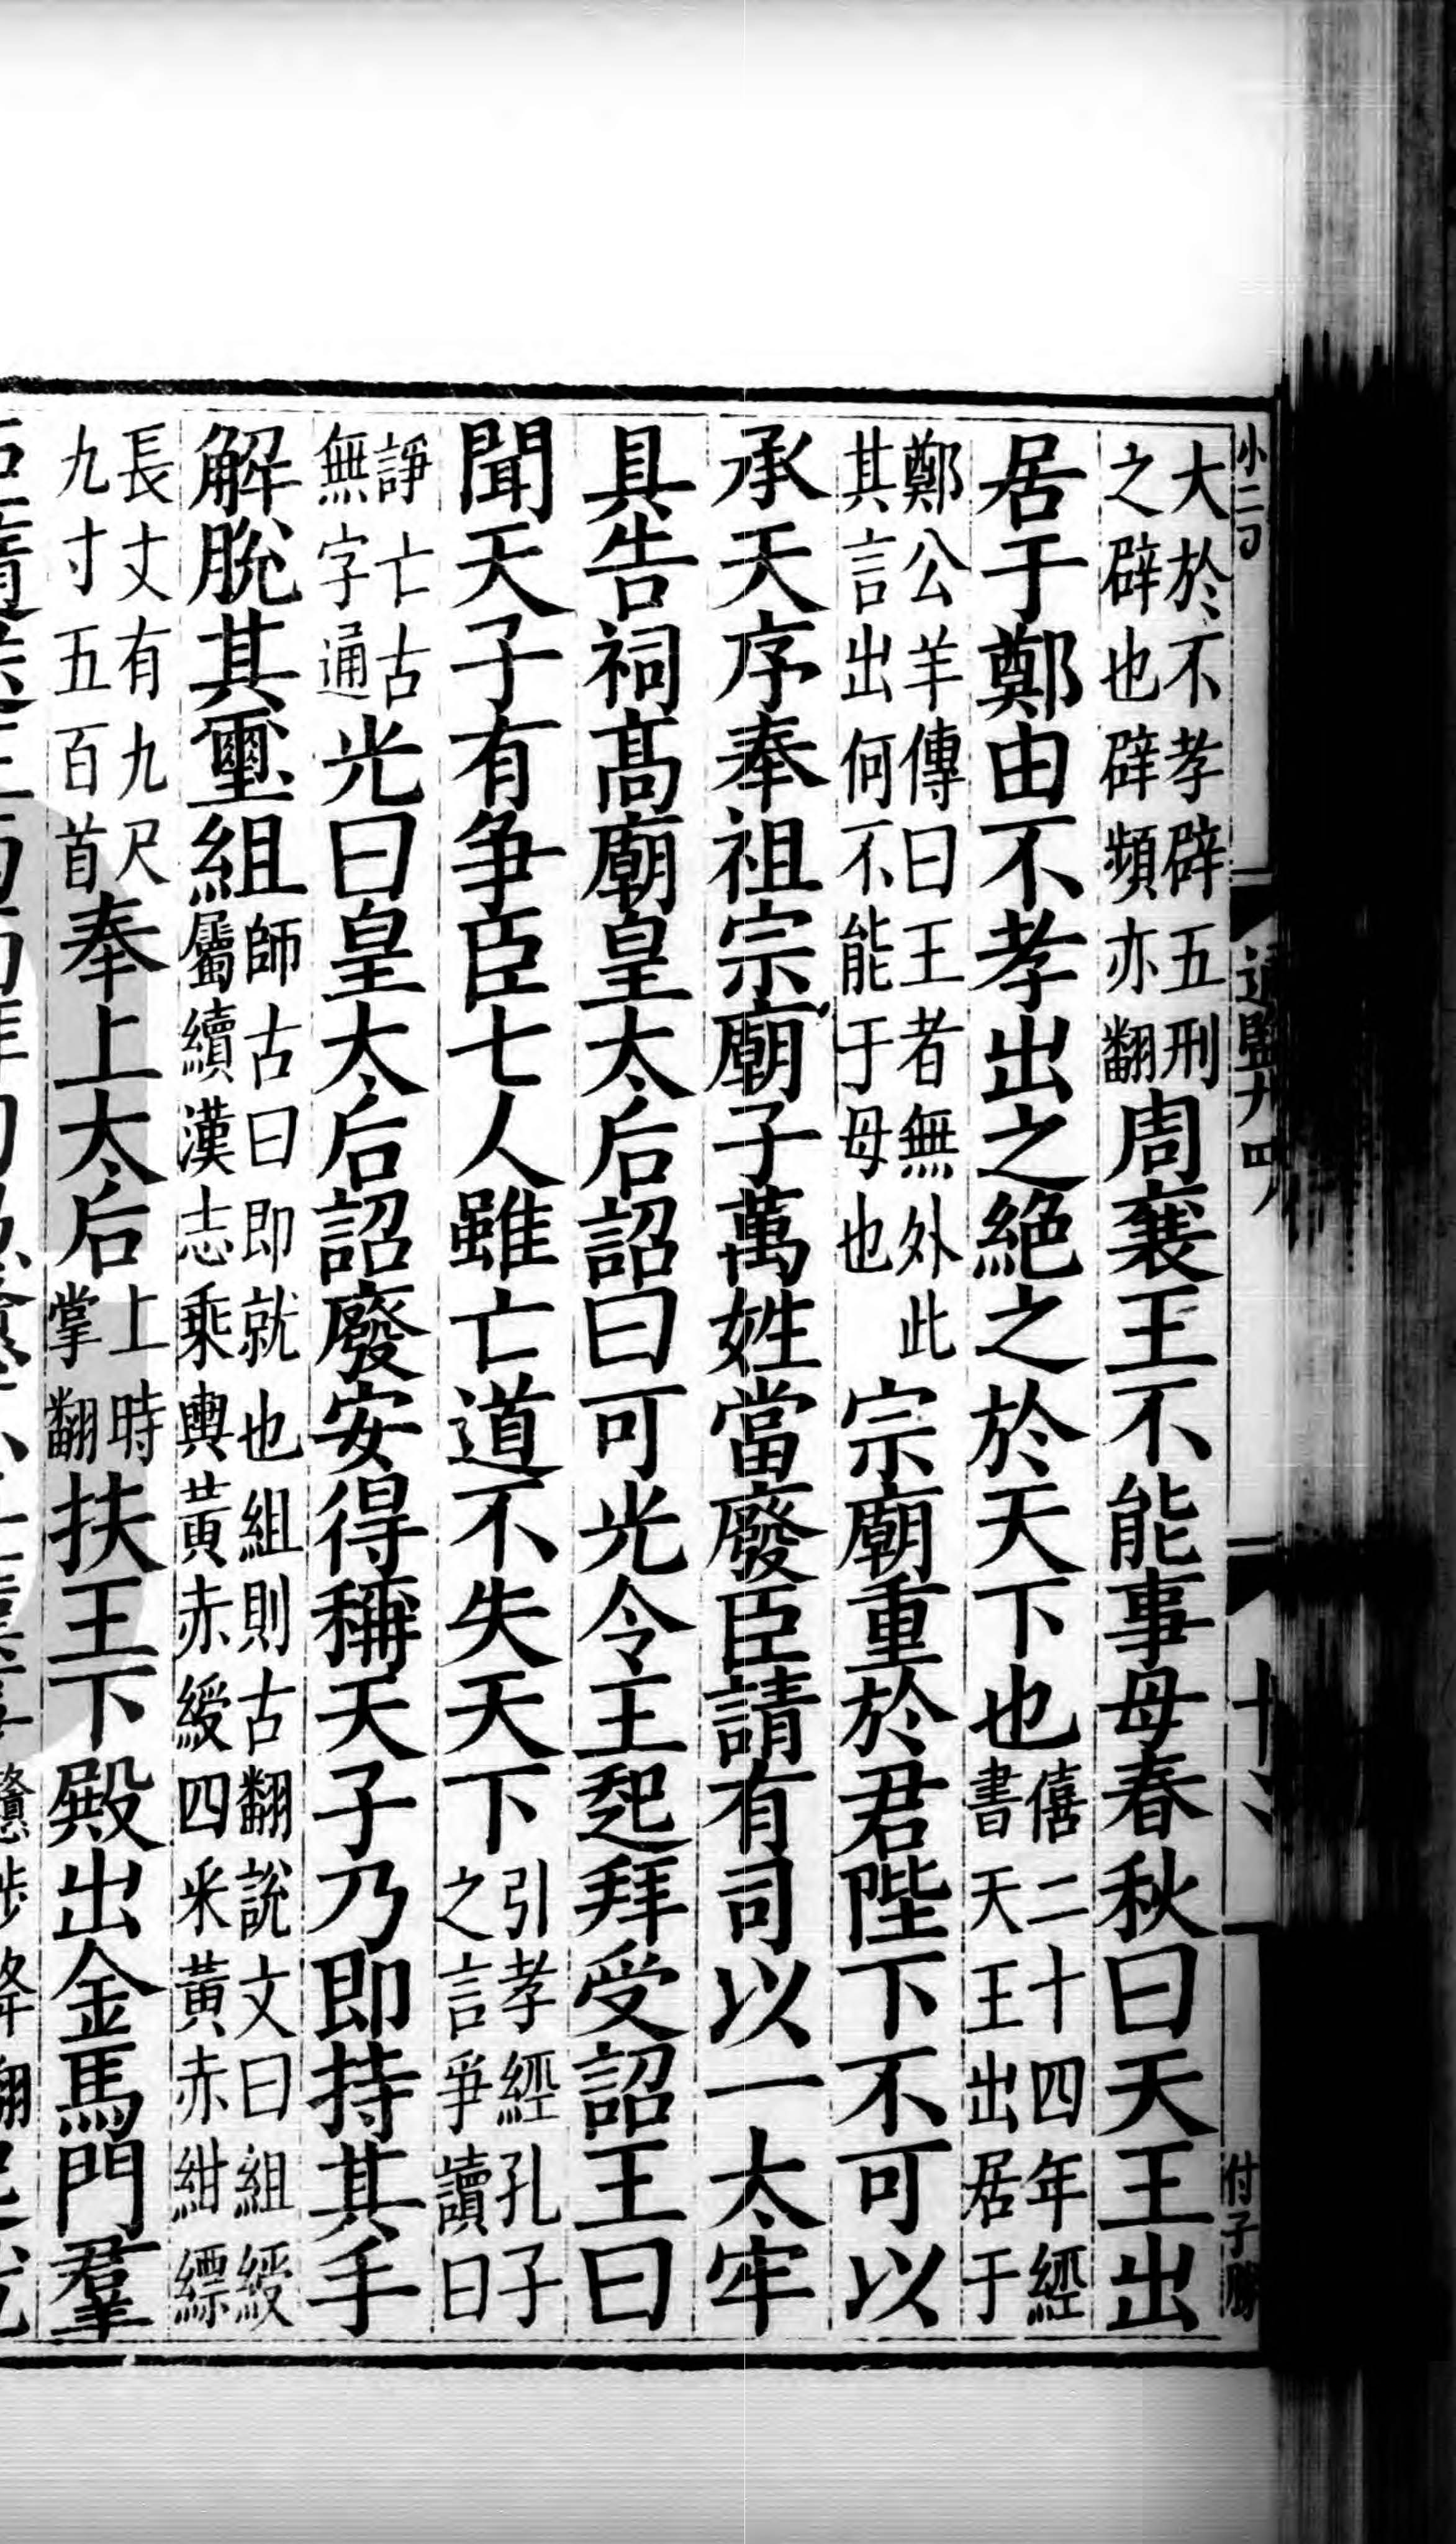 小二
通鑑廿四
付子勝
大於不孝辟五刑
之辟也辟頻亦翻
周襄王不能事母春秋曰天王出
居于鄭由不孝出之絶之於天下也
僖二十四年經
書天王出居于
鄭公羊傳曰王者無外此
其言出何不能于母也
宗廟重於君陛下不可以
承天序奉祖宗廟子萬姓當廢臣請有司以一太牢
具告祠髙廟皇太后詔曰可光令王起拜受詔王曰
聞天子有争臣七人雖亡道不失天下
引孝經孔子
之言爭讀曰
諍亡古
無字通
光曰皇太后詔廢安得稱天子乃即持其手
解脫其璽組
師古曰即就也組則古翻說文曰組綬
屬續漢志乘輿黃赤綬四采黃赤紺縹
長丈有九尺
九寸五百首
奉上太后
上時
掌翻
扶王下殿出金馬門羣